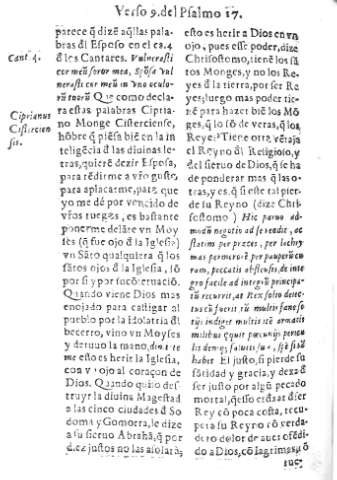 Verso 9. del Psalmo 17.
Cant 4.
Ciprianus
Cisterciensis.
parece q̃ dizẽ aq̃llas palabras
del Esposo en el ca. 4
d̃ los Cantares. Vulnerasti
cor meũ soror mea, Spõsa vulnerasti
cor meũ in vno oculorũ
tuorũ Que como declara
estas palabras Cipriano
Monge Cisterciense,
hõbre q̃ piẽsa biẽ en la intelligẽcia
d̃ las diuinas letras,
quiere dezir Esposa,
para rẽdirme a vr̃o gusto
para aplacarme, para que
yo me dé por vencido de
vr̃os ruegos, es bastante
ponerme delãte vn Moyses
(q̃ fue ojo d̃ la Iglesia)
vn Sãto qualquiera q̃ los
sãtos ojos d̃ la Iglesia, sõ
por si y por su cõternaciõ.
Quando viene Dios mas
enojado para castigar al
pueblo por la idolatria dl̃
becerro, vino vn Moyses
y detuuo la mano,
me esto es herir la Iglesia,
con vn ojo al coraçon de
Dios. Quando quiso destruyr
la diuina Magestad
a las cinco ciudades d̃ Sodoma
y Gomorra, le dize
a su sieruo Abrahã, q̃ por
diez justos no las asolarà;
esto es herir a Dios en vn
ojo, pues esse poder, dize
Chrisostomo, tienẽ los sãtos
Monges, y no los Reyes
d̃ la tierra, por ser Reyes;
luego mas poder tienẽ
para hazer biẽ los Mõges,
q̃ lo sõ de veras, q̃ los
Reyes: Tiene otra vẽtaja
el Reyno dl̃ Religioso, y
del sieruo de Dios, q̃ se ha
de ponderar mas q̃ las otras,
y es, q̃ si este tal pierde
su Reyno (dize Chrisostomo)
Hic paruo admodũ
negotio ad se redit, ac
statim per preces, per lachrymas
per pauperũ curam,
peccatis obscensis, de integro
facile ad integrũ principatũ
recurrit, at Rex solio deiectus
eũ fuerit rũ multis
indiget multis etiã armatis
militibus
habet El justo, si pierde su
sãtidad y gracia, y dexa d̃
ser justo por algũ pecado
mortal, q̃ esso es dexar d̃ ser
Rey cõ poca costa, recupera
su Reyno cõ verdadero
dolor de auer ofẽdido
a Dios, cõ lagrimas, cõ